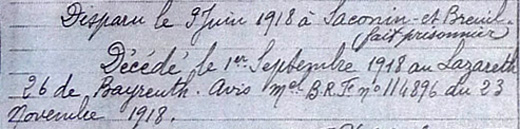 Disparu le 9 Juin 1918 à Saconin-et Breuil.
fait prisonnier
Décédé le 1er Septembre 1918 au Lazareth
26 de Bayreuth. Avis mel B.R.F. nº 114896 du 23
Novembre 1918.